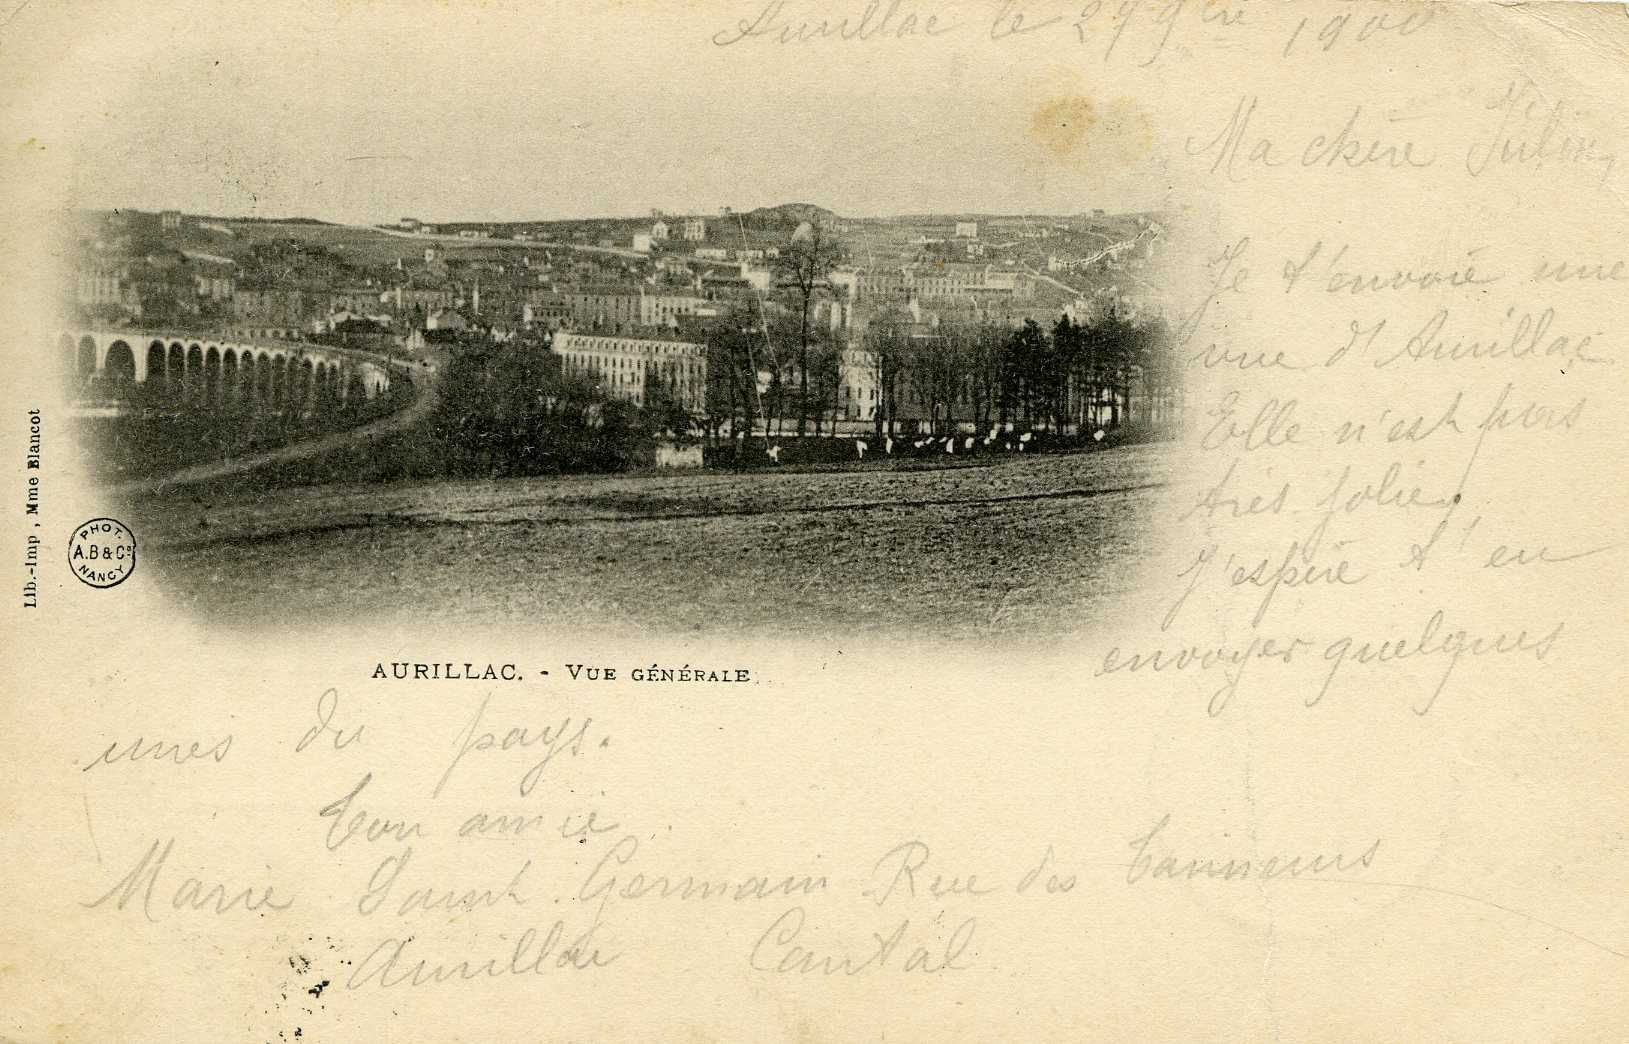 Aurillac le 27 9bre 1900
Ma chère
Je t'envoie une
vue d'Aurillac.
Elle n'est pas
très jolie,
J'espère t'en
envoyer quelques
unes du pays.
Ton amie
Marie Saint Germain Rue des Tanneurs
Aurillac Cantal
AURILLAC. - VUE GÉNÉRALE
Lib.-Imp, Mme Blancot
PHOT.
A.B & Cº
NANCY